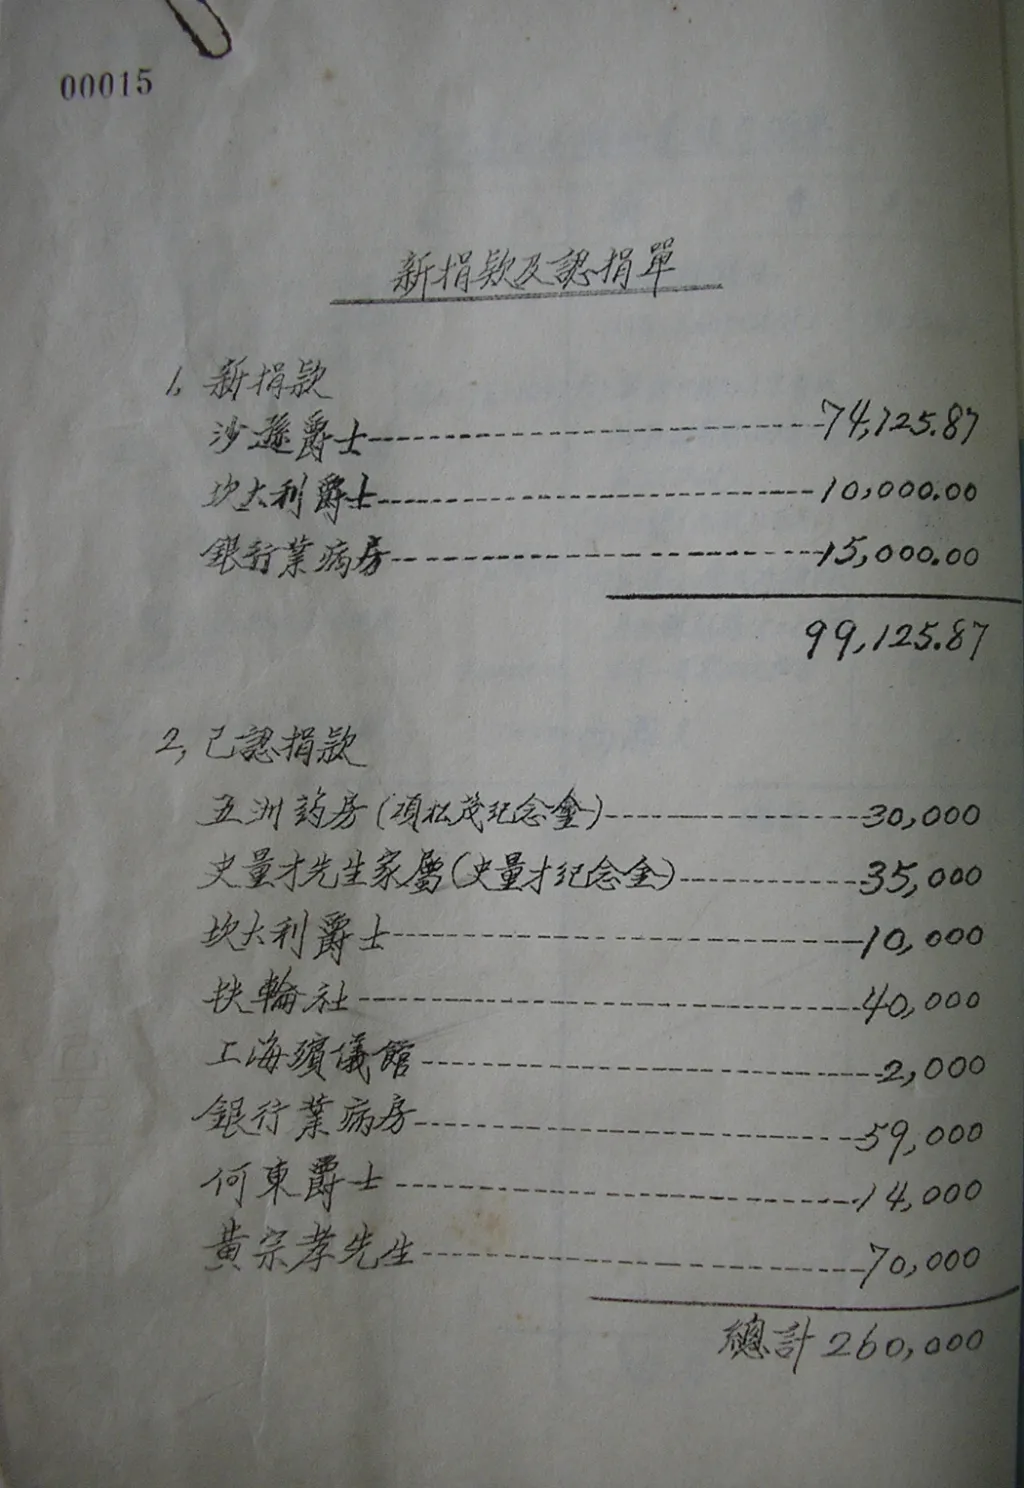 00015
新捐款及認捐單
1, 新捐款
沙遜爵士 74,125.87
坎大利爵士 10,000.00
銀行業病房 15,000.00
99,125.87
2, 已認捐款
五洲药房(項松茂紀念金) 30,000
史量才先生家屬(史量才紀念金) 35,000
坎大利爵士 10,000
扶輪社 40,000
上海殯儀館 2,000
銀行業病房 59,000
何東爵士 14,000
黃宗孝先生 70,000
總計 260,000